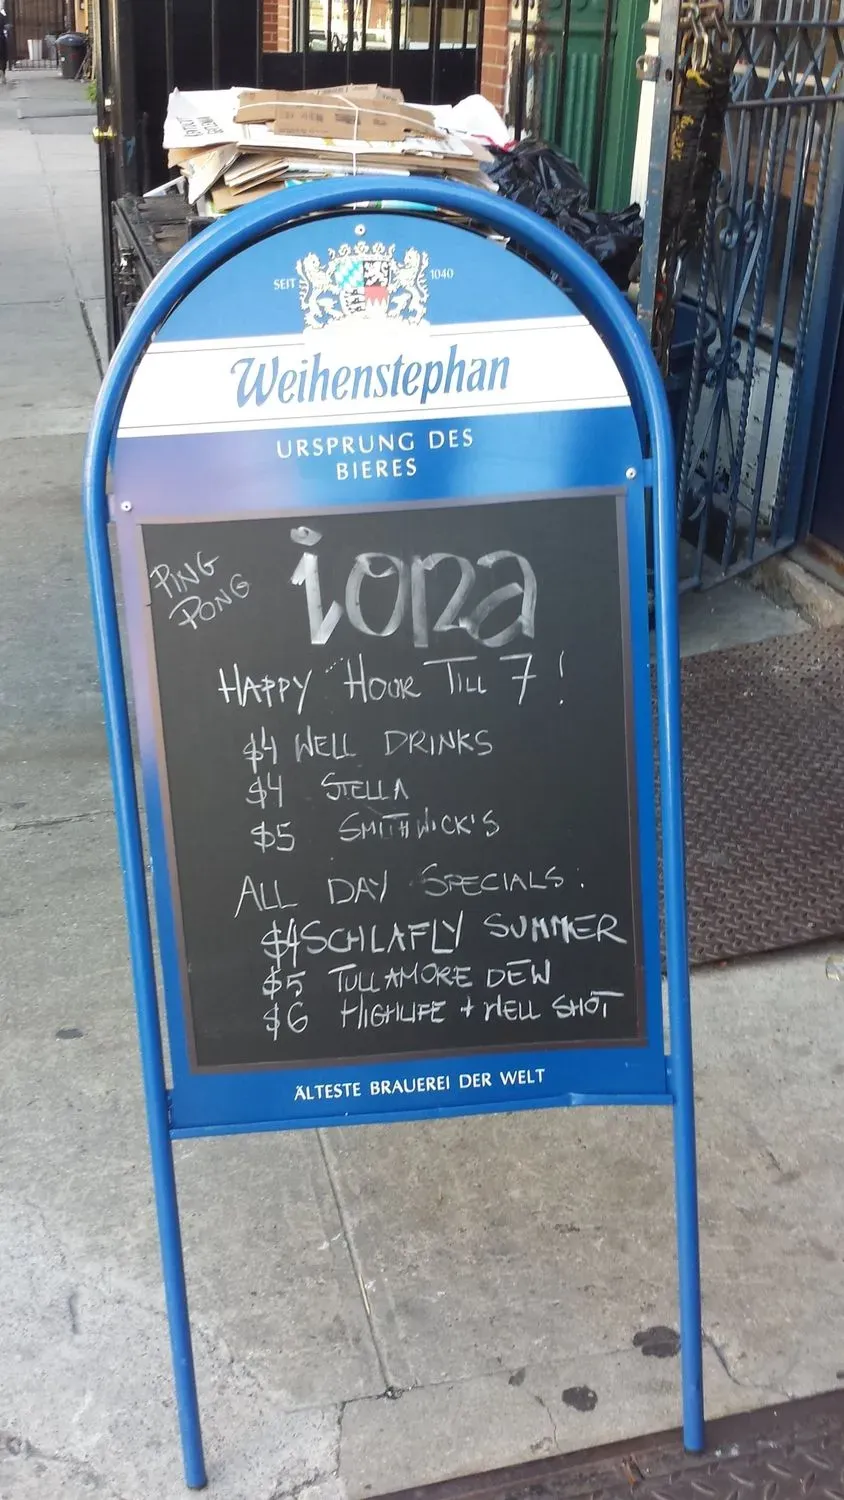 SEIT 1040
Weihenstephan
URSPRUNG DES
BIERES
PING
PONG
iona
HAPPY HOUR TILL 7!
$4 WELL DRINKS
$4 STELLA
$5 SMITHWICK'S
ALL DAY SPECIALS:
$4 SCHLAFLY SUMMER
$5 TULLAMORE DEW
$6 HIGHLIFE + WELL SHOT
ÄLTESTE BRAUEREI DER WELT